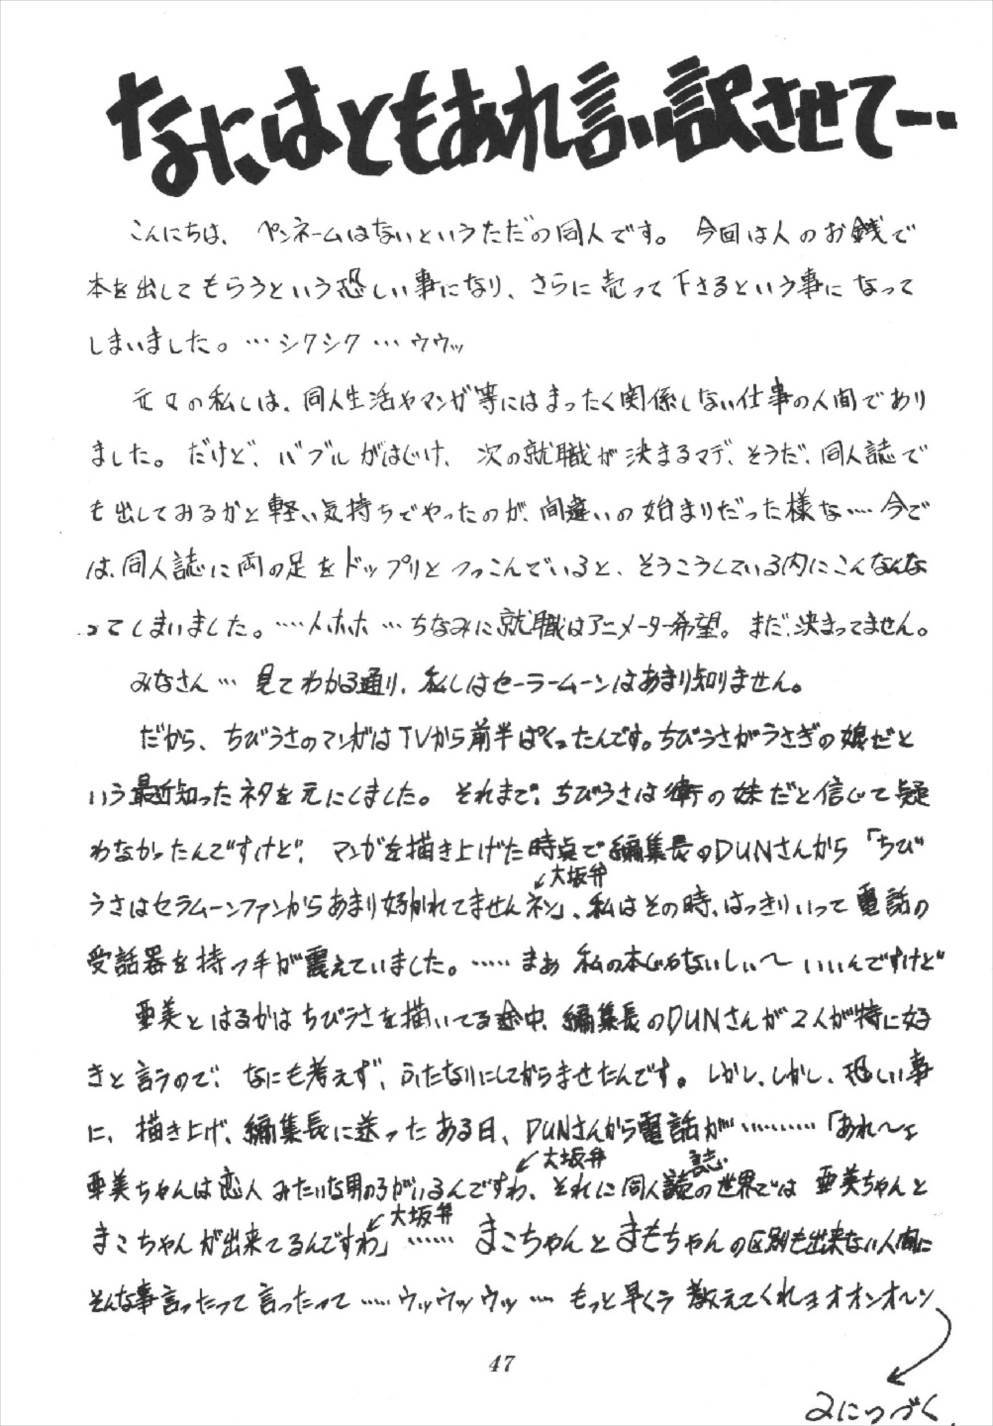 なにはともあれ言い訳させて…
こんにちは、ペンネームはないというただの同人です。今回は人のお銭で
本を出してもらうという恐しい事になり、さらに売って下さるという事になって
しまいました。…シクシク…ウウッ
元々の私しは、同人生活やマンガ等にはまったく関係しない仕事の人間であり
ました。だけど、バブルがはじけ、次の就職が決まるマデ、そうだ、同人誌で
も出してみるかと軽い気持ちでやったのが、間違いの始まりだった様な…今で
は、同人誌に両の足をドップリとつっこんでいると、そうこうしている内にこんなんな
ってしまいました。……ホホ…ちなみに就職はアニメーター希望。まだ、決まってません。
みなさん…見てわかる通り、私しはセーラームーンはあまり知りません。
だから、ちびうさのマンガはTVから前半ぱくったんです。ちびうさがうさぎの娘だと
いう最近知ったネタを元にしました。それまで、ちびうさは衛の妹だと信じて疑
わなかったんですけど、マンガを描き上げた時点で編集長のDUNさんから「ちび
↙大坂弁
うさはセラムーンファンからあまり好かれてませんネン」、私はその時、はっきりいって電話の
受話器を持つ手が震えていました。……まぁ私の本じゃないしぃ〜いいんですけど
亜美とはるかはちびうさを描いてる途中、編集長のDUNさんが2人が特に好
きと言うので、なにも考えず、ふたなりにしてからませたんです。しかし、しかし、恐しい事
に、描き上げ、編集長に送ったある日、DUNさんから電話が…………「あれ〜ェ
↙大坂弁 誌
亜美ちゃんは恋人みたいな男の子がいるんですわ、それに同人の世界では亜美ちゃんと
↙大坂弁
まこちゃんが出来てるんですわ」……まこちゃんとまもちゃんの区別も出来ない人間に
そんな事言ったって言ったって……ウッウッウッ…もっと早くう教えてくれョオオンオーン
47
2につづく